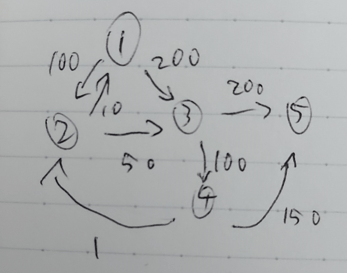 1
100
200
10
200
2
3
5
50
100
4
150
1